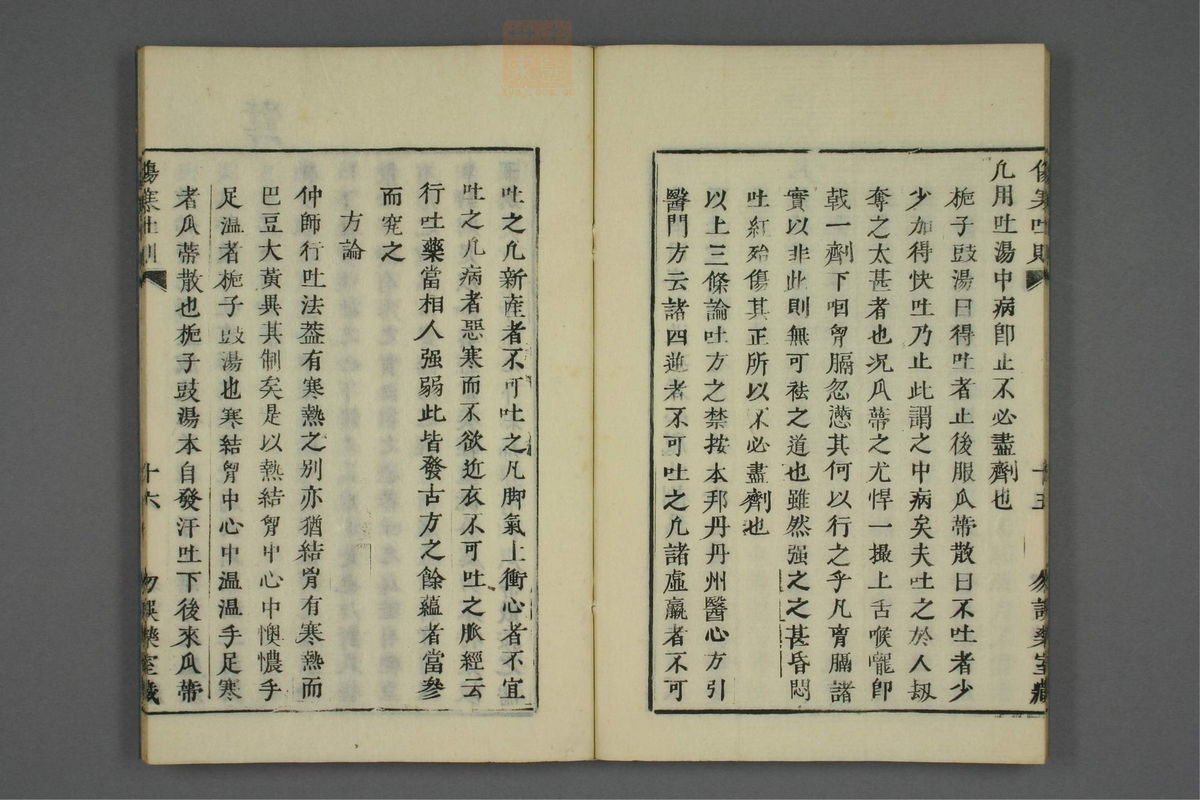 凢用吐湯中病卽止不必盡劑也
梔子豉湯曰得吐者止後服瓜蔕散曰不吐者少
少加得快吐乃止此謂之中病矣夫吐之於人刼
奪之太甚者也况瓜蔕之尤悍一撮上舌喉嚨卽
戟一劑下咽胷膈忽懣其何以行之乎凡膏膈諸
實以非此則無可袪之道也雖然强之之甚昏悶
吐紅殆傷其正所以不必盡劑也
以上三條論吐方之禁按本邦丹丹州醫心方引
醫門方云諸四逆者不可吐之凢諸虛羸者不可
傷寒吐則
十五
勿誤藥室藏
吐之凢新産者不可吐之凡脚氣上衝心者不宜
吐之凢病者惡寒而不欲近衣不可吐之脈經云
行吐藥當相人强弱此皆發古方之餘蘊者當參
而究之
方論
仲師行吐法葢有寒熱之别亦猶結胷有寒熱而
巴豆大黃異其制矣是以熱結胷中心中懊憹手
足温者梔子豉湯也寒結胷中心中温温手足寒
者瓜蔕散也梔子豉湯本自發汗吐下後來瓜蔕
傷寒吐則
十六
勿誤藥室藏